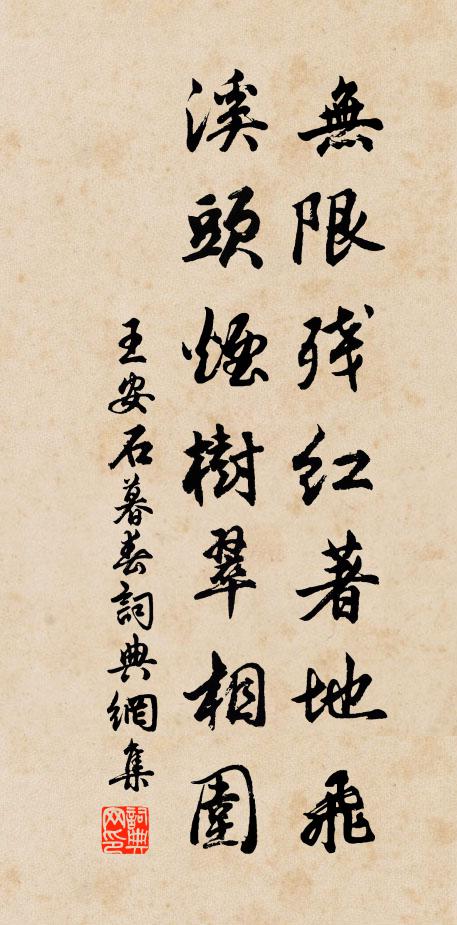 無限殘紅著地飛
溪頭煙樹翠相圍
王安石暮春詞典網集
詞典網印